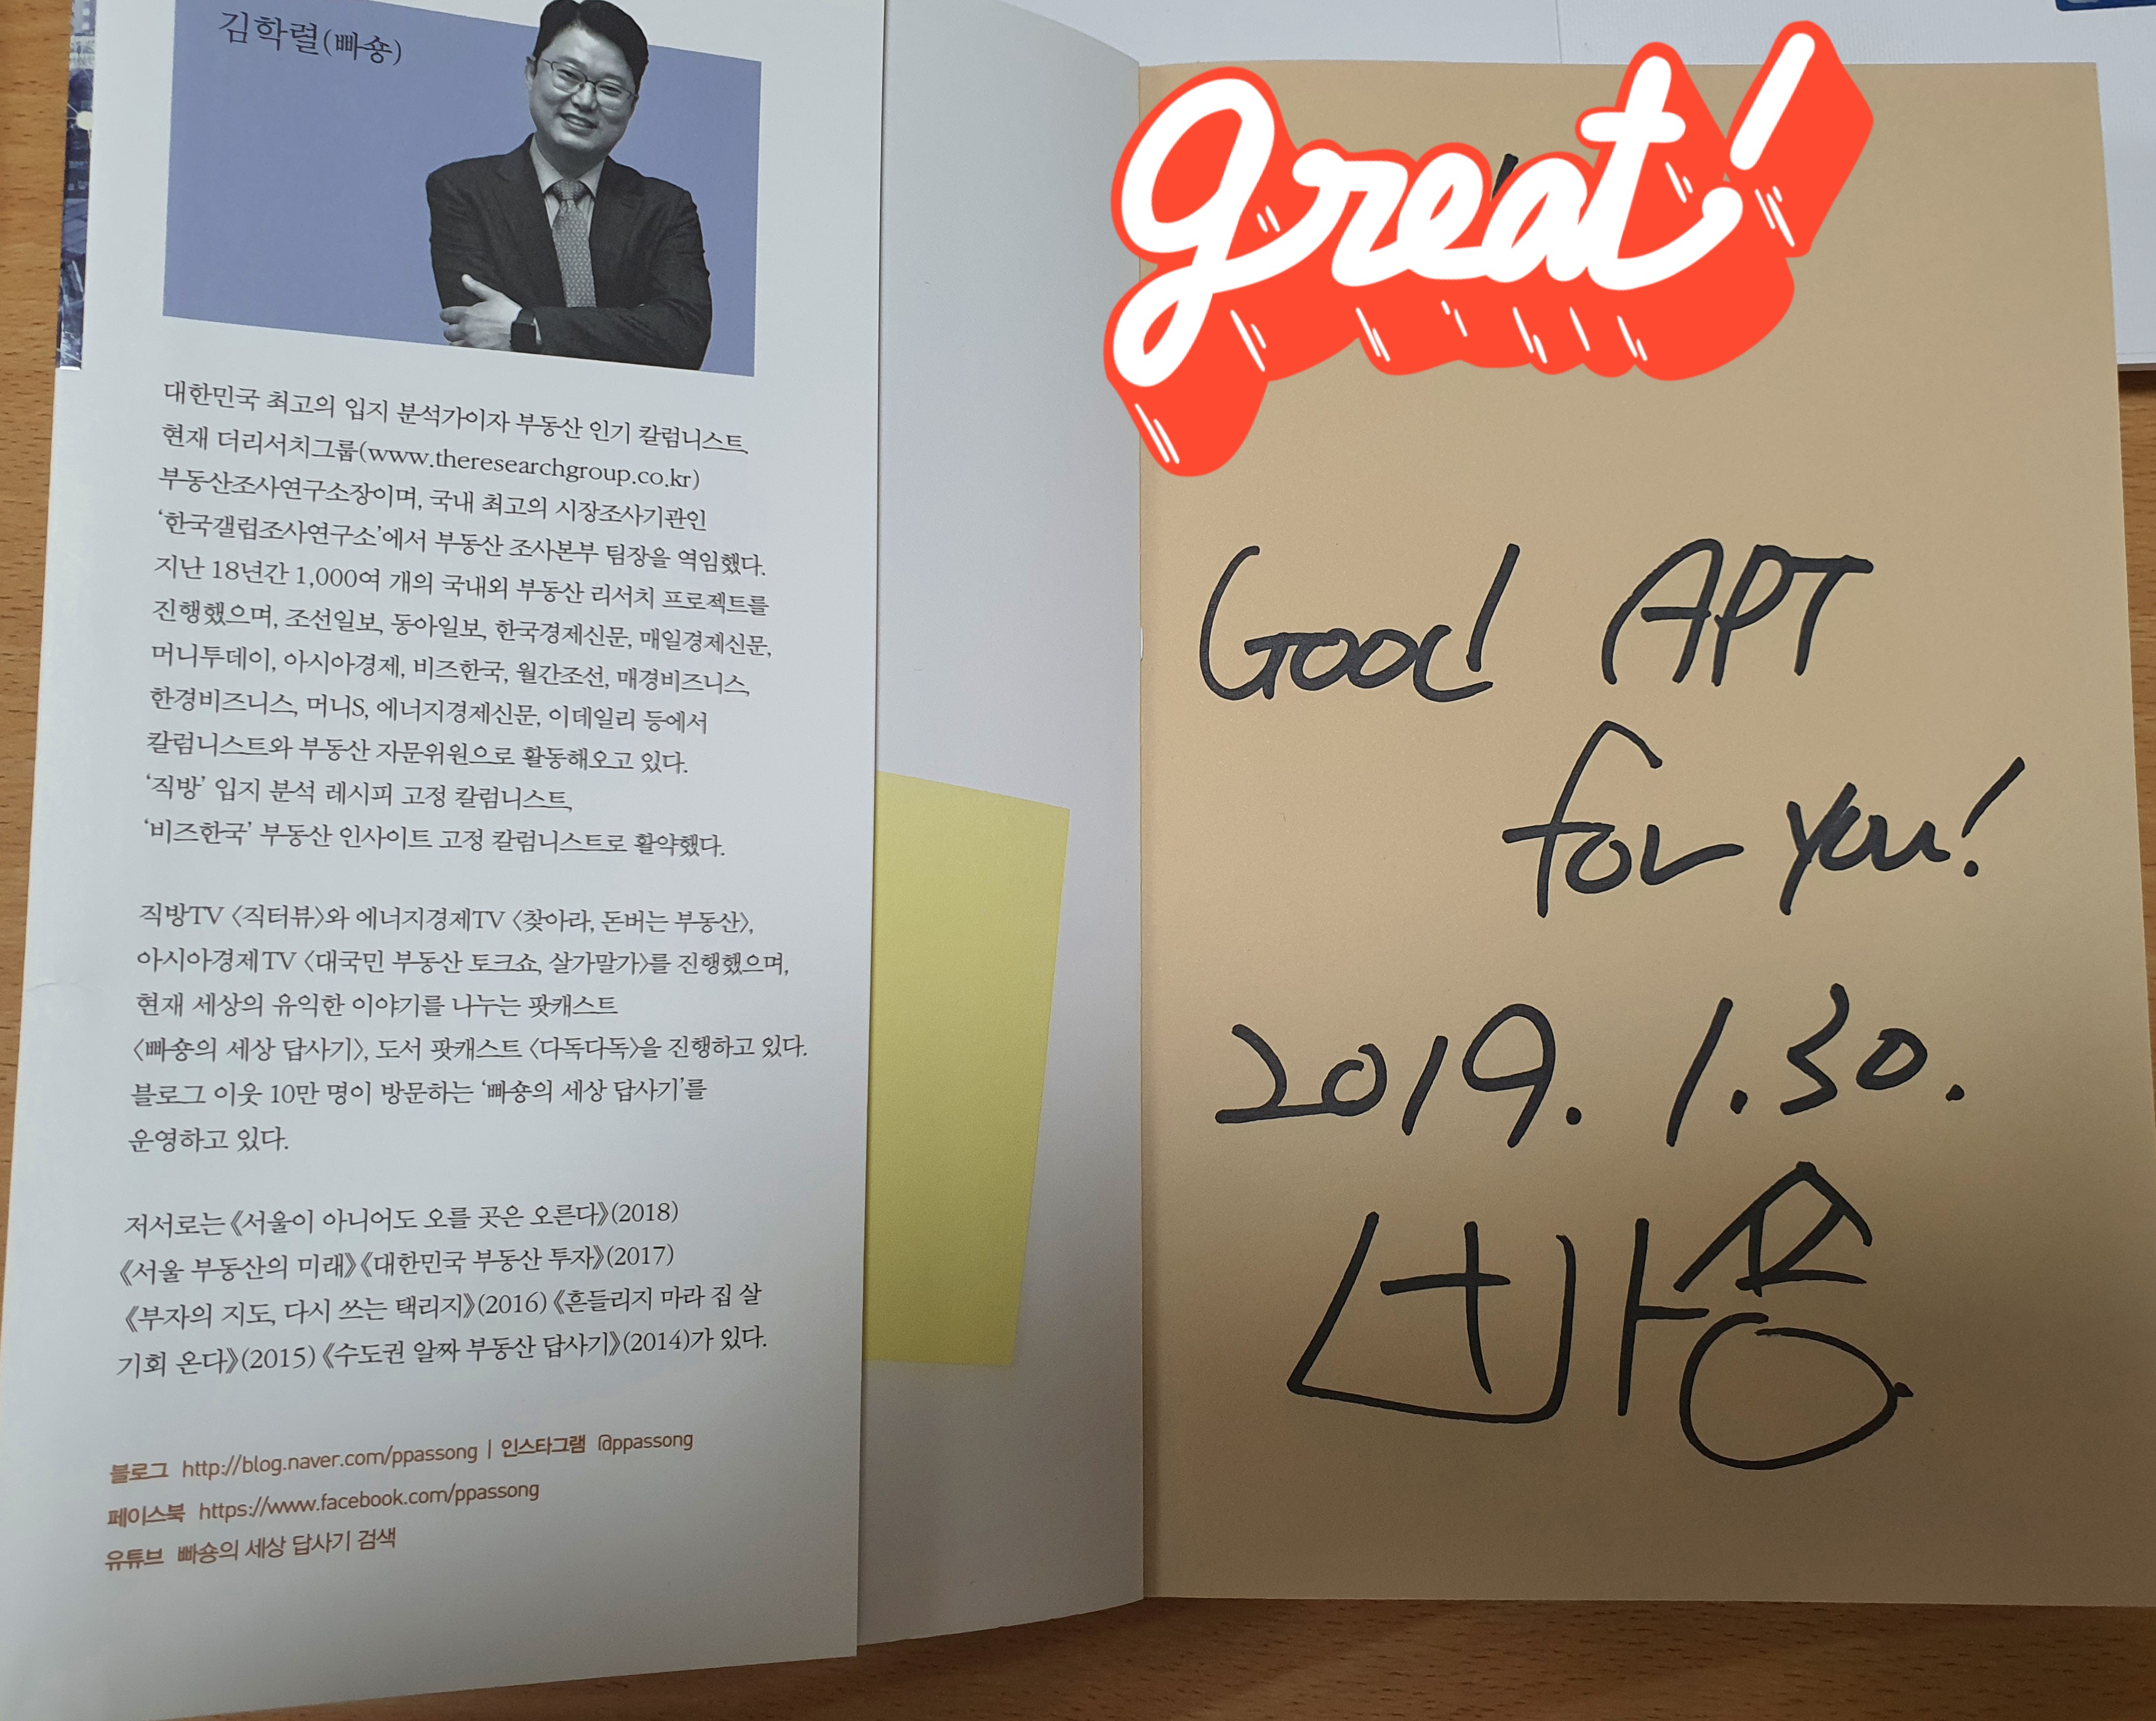 김학렬(빠숑)
대한민국 최고의 입지 분석가이자 부동산 인기 칼럼니스트,
현재 더리서치그룹(www.theresearchgroup.co.kr)
부동산조사연구소장이며, 국내 최고의 시장조사기관인
‘한국갤럽조사연구소’에서 부동산 조사본부 팀장을 역임했다.
지난 18년간 1,000여 개의 국내외 부동산 리서치 프로젝트를
진행했으며, 조선일보, 동아일보, 한국경제신문, 매일경제신문,
머니투데이, 아시아경제, 비즈한국, 월간조선, 매경비즈니스,
한경비즈니스, 머니S, 에너지경제신문, 이데일리 등에서
칼럼니스트와 부동산 자문위원으로 활동해오고 있다.
‘직방’ 입지 분석 레시피 고정 칼럼니스트,
‘비즈한국’ 부동산 인사이트 고정 칼럼니스트로 활약했다.
직방TV 〈직터뷰〉와 에너지경제TV 〈찾아라, 돈버는 부동산〉,
아시아경제TV 〈대국민 부동산 토크쇼, 살가말가〉를 진행했으며,
현재 세상의 유익한 이야기를 나누는 팟캐스트
〈빠숑의 세상 답사기〉, 도서 팟캐스트 〈다독다독〉을 진행하고 있다.
블로그 이웃 10만 명이 방문하는 ‘빠숑의 세상 답사기’를
운영하고 있다.
저서로는 《서울이 아니어도 오를 곳은 오른다》(2018)
《서울 부동산의 미래》《대한민국 부동산 투자》(2017)
《부자의 지도, 다시 쓰는 택리지》(2016) 《흔들리지 마라 집 살
기회 온다》(2015) 《수도권 알짜 부동산 답사기》(2014)가 있다.
블로그 http://blog.naver.com/ppassong | 인스타그램 @ppassong
페이스북 https://www.facebook.com/ppassong
유튜브 빠숑의 세상 답사기 검색
great!
Good APT
for you!
2019. 1.30.
빠숑